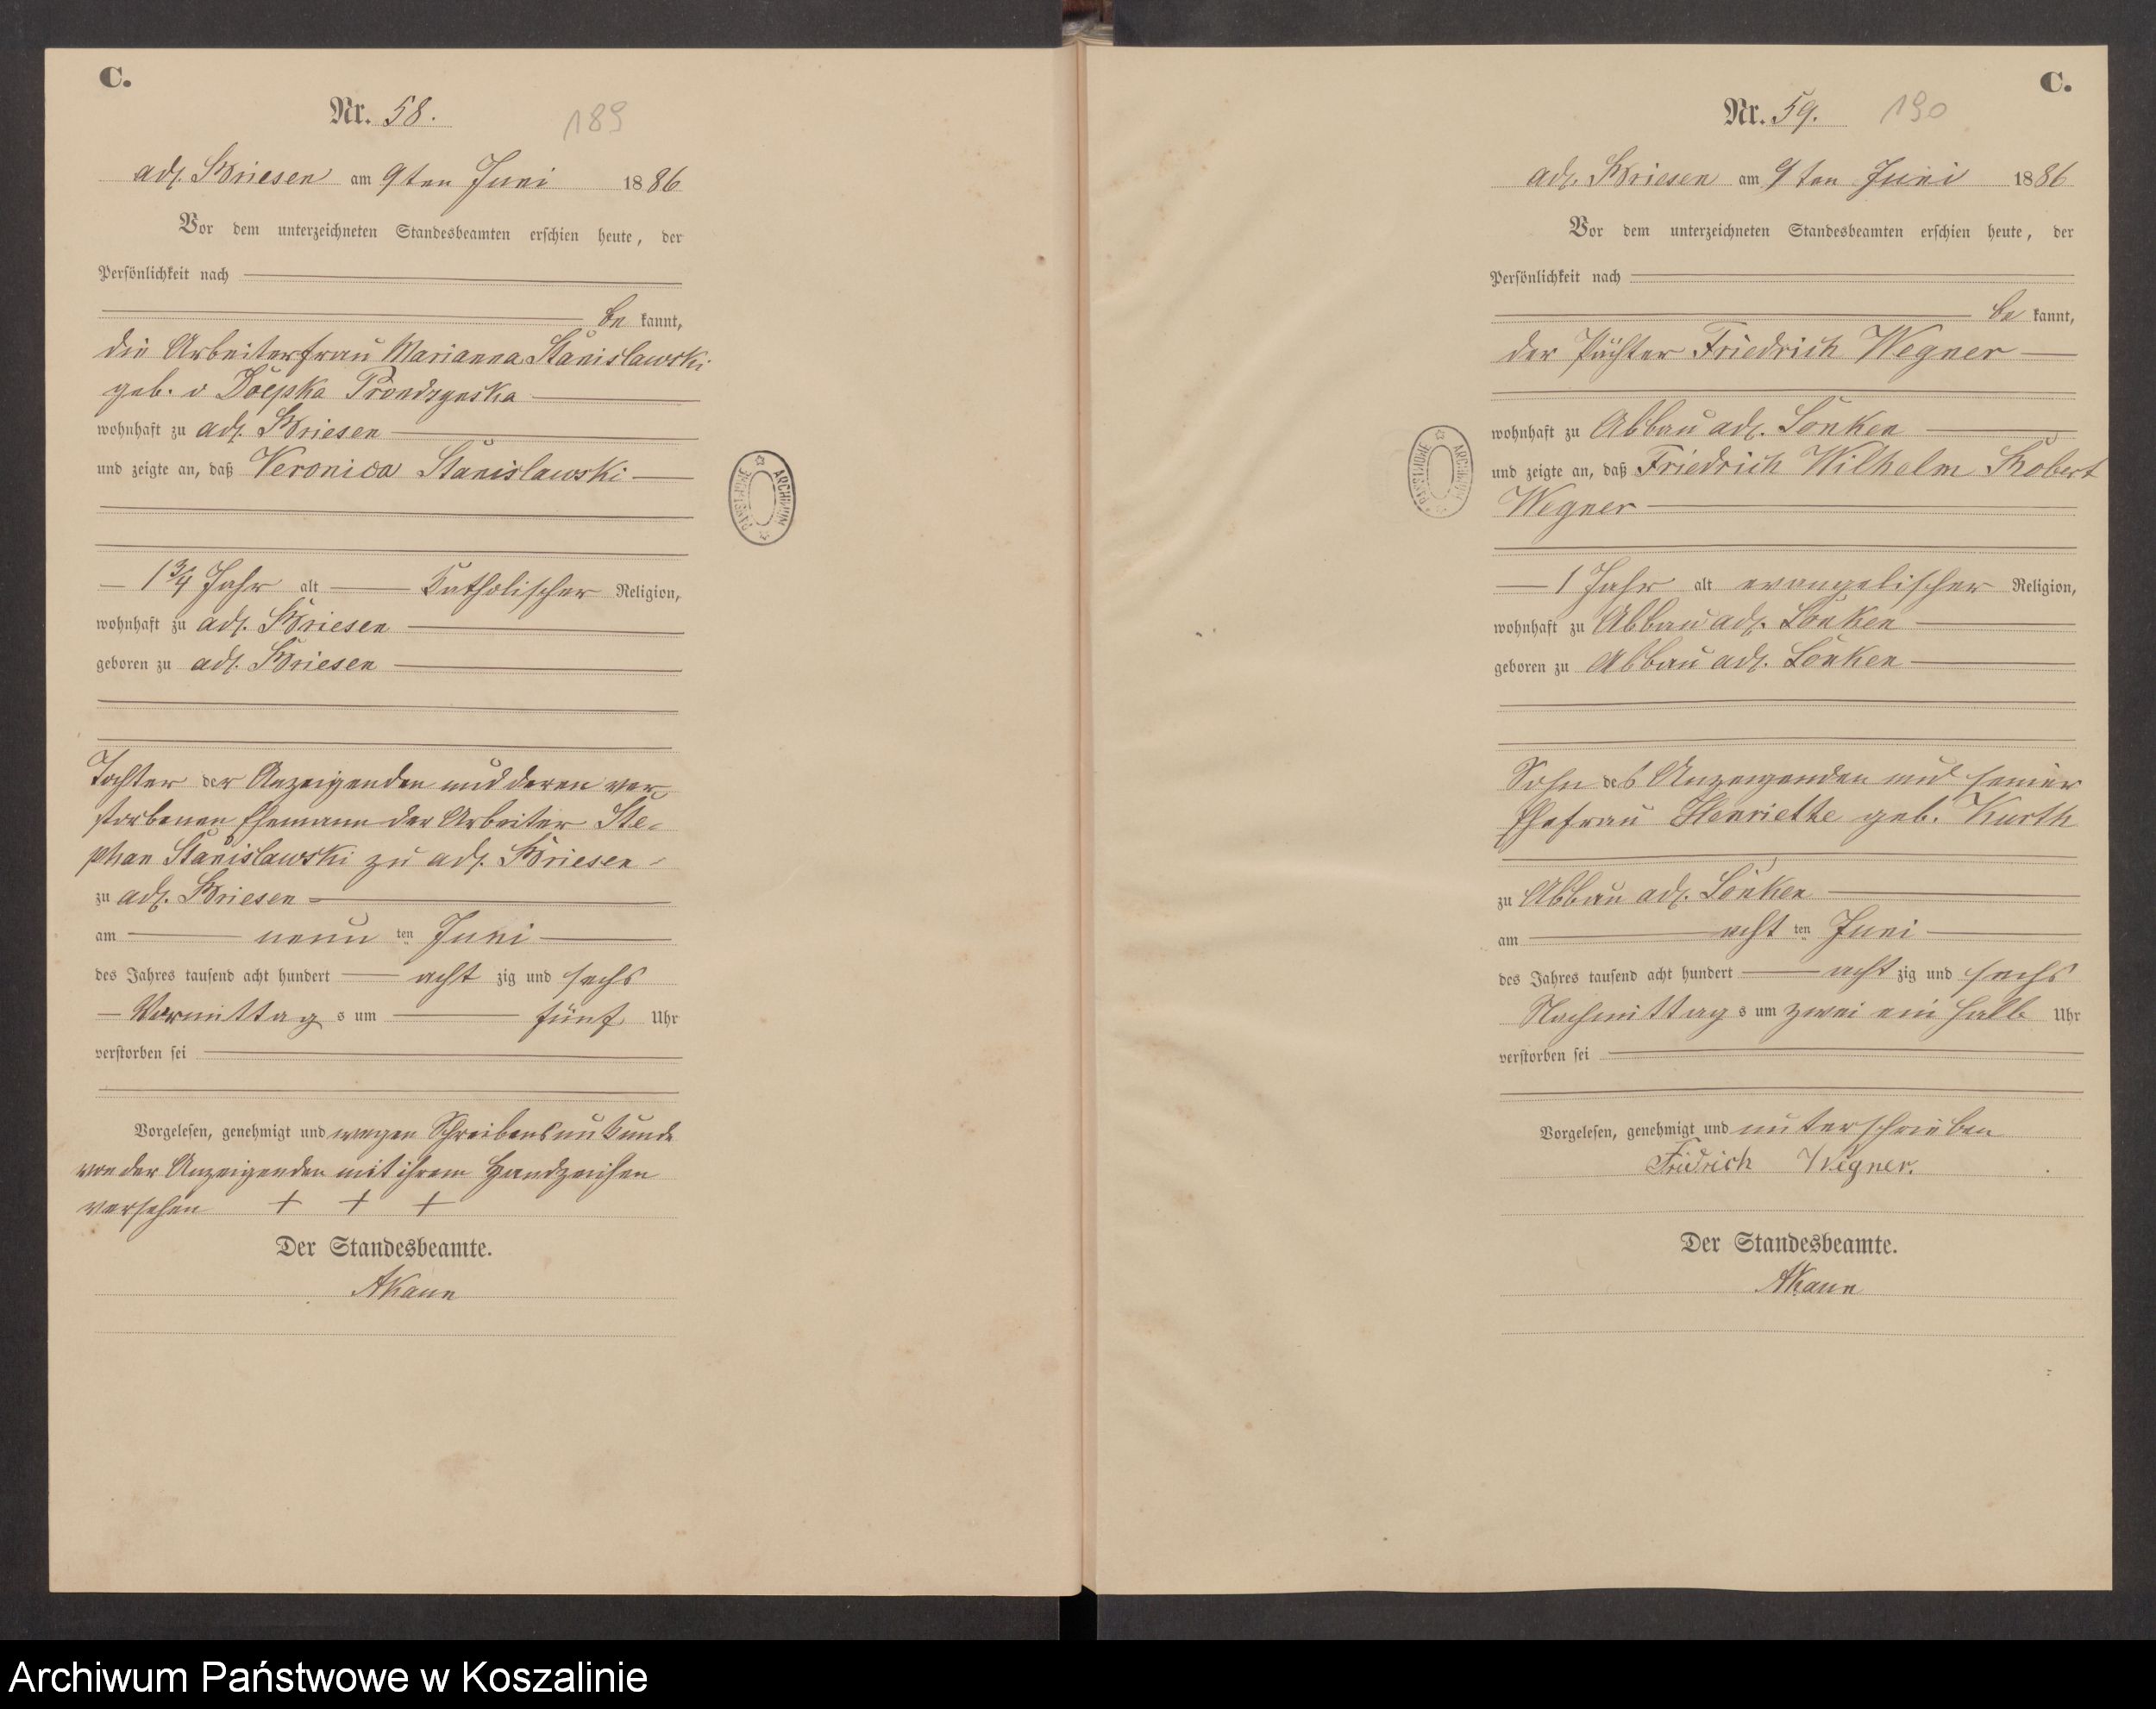 C.
Nr. 58.
189
adl. Briesen am 9ten Juni 1886
Vor dem unterzeichneten Standesbeamten erschien heute, der
Persönlichkeit nach
be kannt,
die Arbeiterfrau Marianna Stanislawski
geb. v
wohnhaft zu adl. Briesen
und zeigte an, daß Veronica Stanislawski
1 3/4 Jahr alt Katholischer Religion,
wohnhaft zu adl. Briesen
geboren zu adl. Briesen
Tochter der Anzeigenden und deren ver-
storbenen Ehemann der Arbeiter Ste-
phan Stanislawski zu adl. Briesen
zu adl. Briesen
am neun ten Juni
des Jahres tausend acht hundert acht zig und sechs
Vormittag s um fünf Uhr
verstorben sei
Vorgelesen, genehmigt und wegen Schreibensunkunde
von der Anzeigenden mit ihrem Handzeichen
versehen + + +
Der Standesbeamte.
ARCHIWUM PAŃSTWOWE
C.
Nr. 59.
190
adl. Briesen am 9ten Juni 1886
Vor dem unterzeichneten Standesbeamten erschien heute, der
Persönlichkeit nach
be kannt,
der Pächter Friedrich Wegner
wohnhaft zu Abbau adl. Lonken
und zeigte an, daß Friedrich Wilhelm Robert
Wegner
1 Jahr alt evangelischer Religion,
wohnhaft zu Abbau adl. Lonken
geboren zu Abbau adl. Lonken
Sohn des Anzeigenden und seiner
Ehefrau Henriette geb. Kurth
zu Abbau adl. Lonken
am acht ten Juni
des Jahres tausend acht hundert acht zig und sechs
Nachmittag s um zwei ein halb Uhr
verstorben sei
Vorgelesen, genehmigt und unterschrieben
Fridrich Wegner.
Der Standesbeamte.
ARCHIWUM PAŃSTWOWE
Archiwum Państwowe w Koszalinie